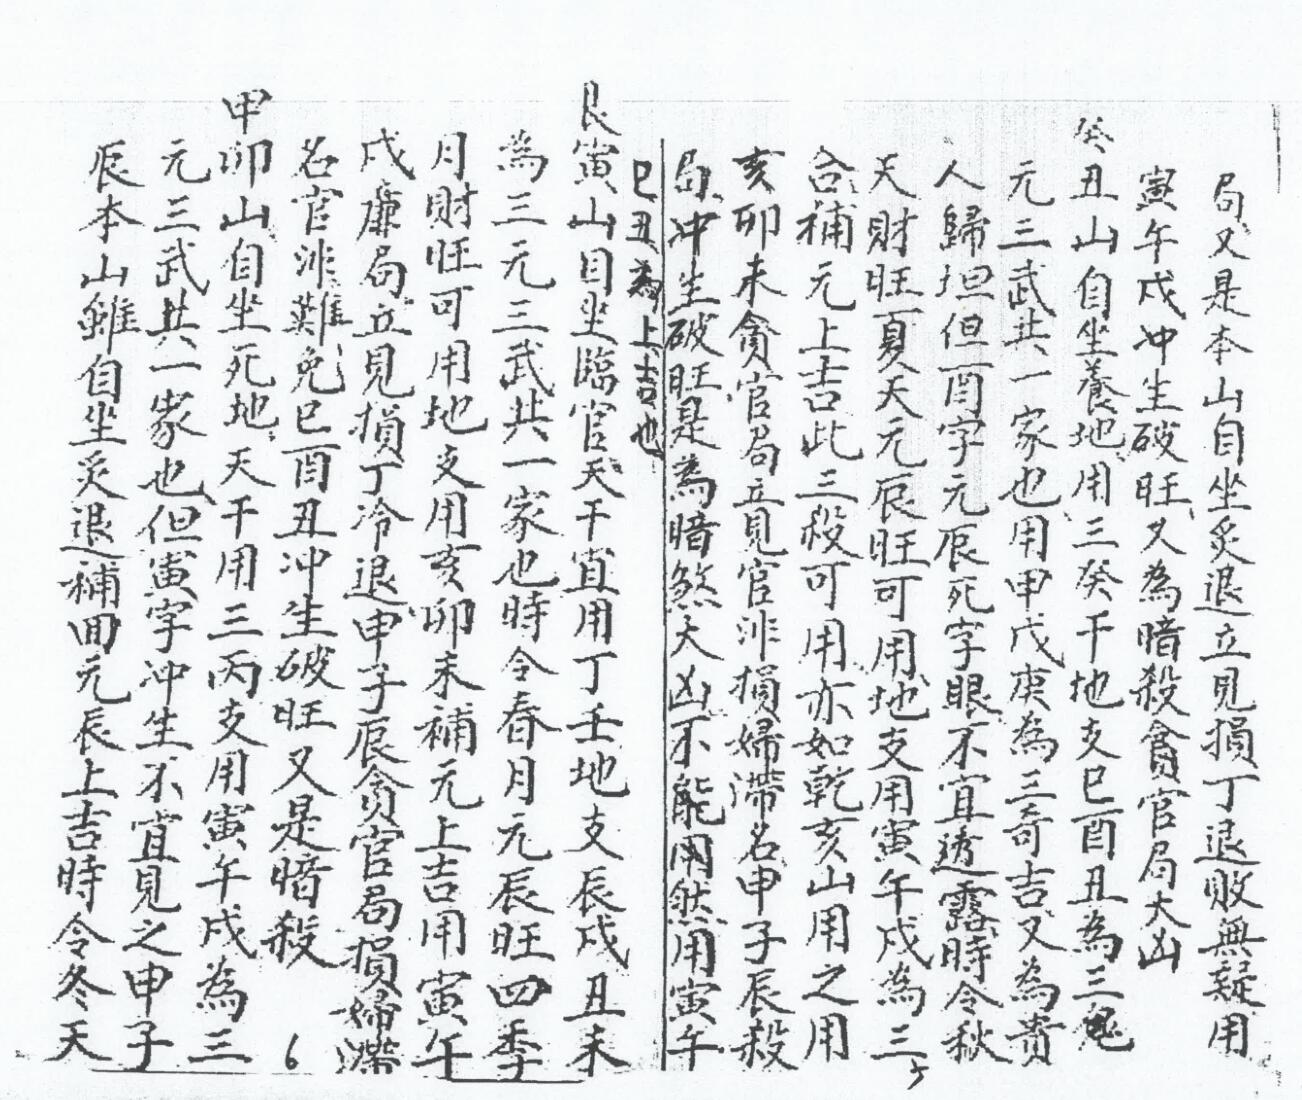 局又是本山自坐炙退立見損丁退敗無疑用
寅午戌冲生破旺又為暗殺貪官局大凶
癸丑山自坐養地用三癸干地支巳酉丑為三
元三武共一家也用甲戊庚為三奇吉又為貴
人歸垣但酉字元辰死字眼不宜透露時令秋
天財旺夏天元辰旺可用地支用寅午戌為三
合補元上吉此三殺可用亦如乾亥山用之用
亥卯未貪官局立見官非損婦滯名申子辰殺
局冲生破旺是為暗煞大凶不能用然用寅午
巳丑為上吉也
5
艮寅山自坐臨官天干宜用丁壬地支辰戌丑未
為三元三武共一家也時令春月元辰旺四季
月財旺可用地支用亥卯未補元上吉用寅午
戌廉局立見損丁冷退申子辰貪官局損婦滯
名官非難免巳酉丑冲生破旺又是暗殺
6
甲卯山自坐死地天干用三丙支用寅午戌為三
元三武共一家也但寅字冲生不宜見之申子
辰本山雖自坐炙退補回元辰上吉時令冬天